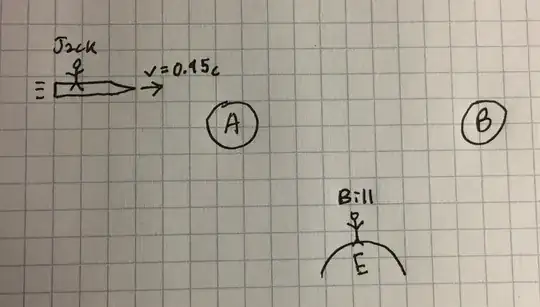 Jack
v=0.95c
A
B
Bill
E